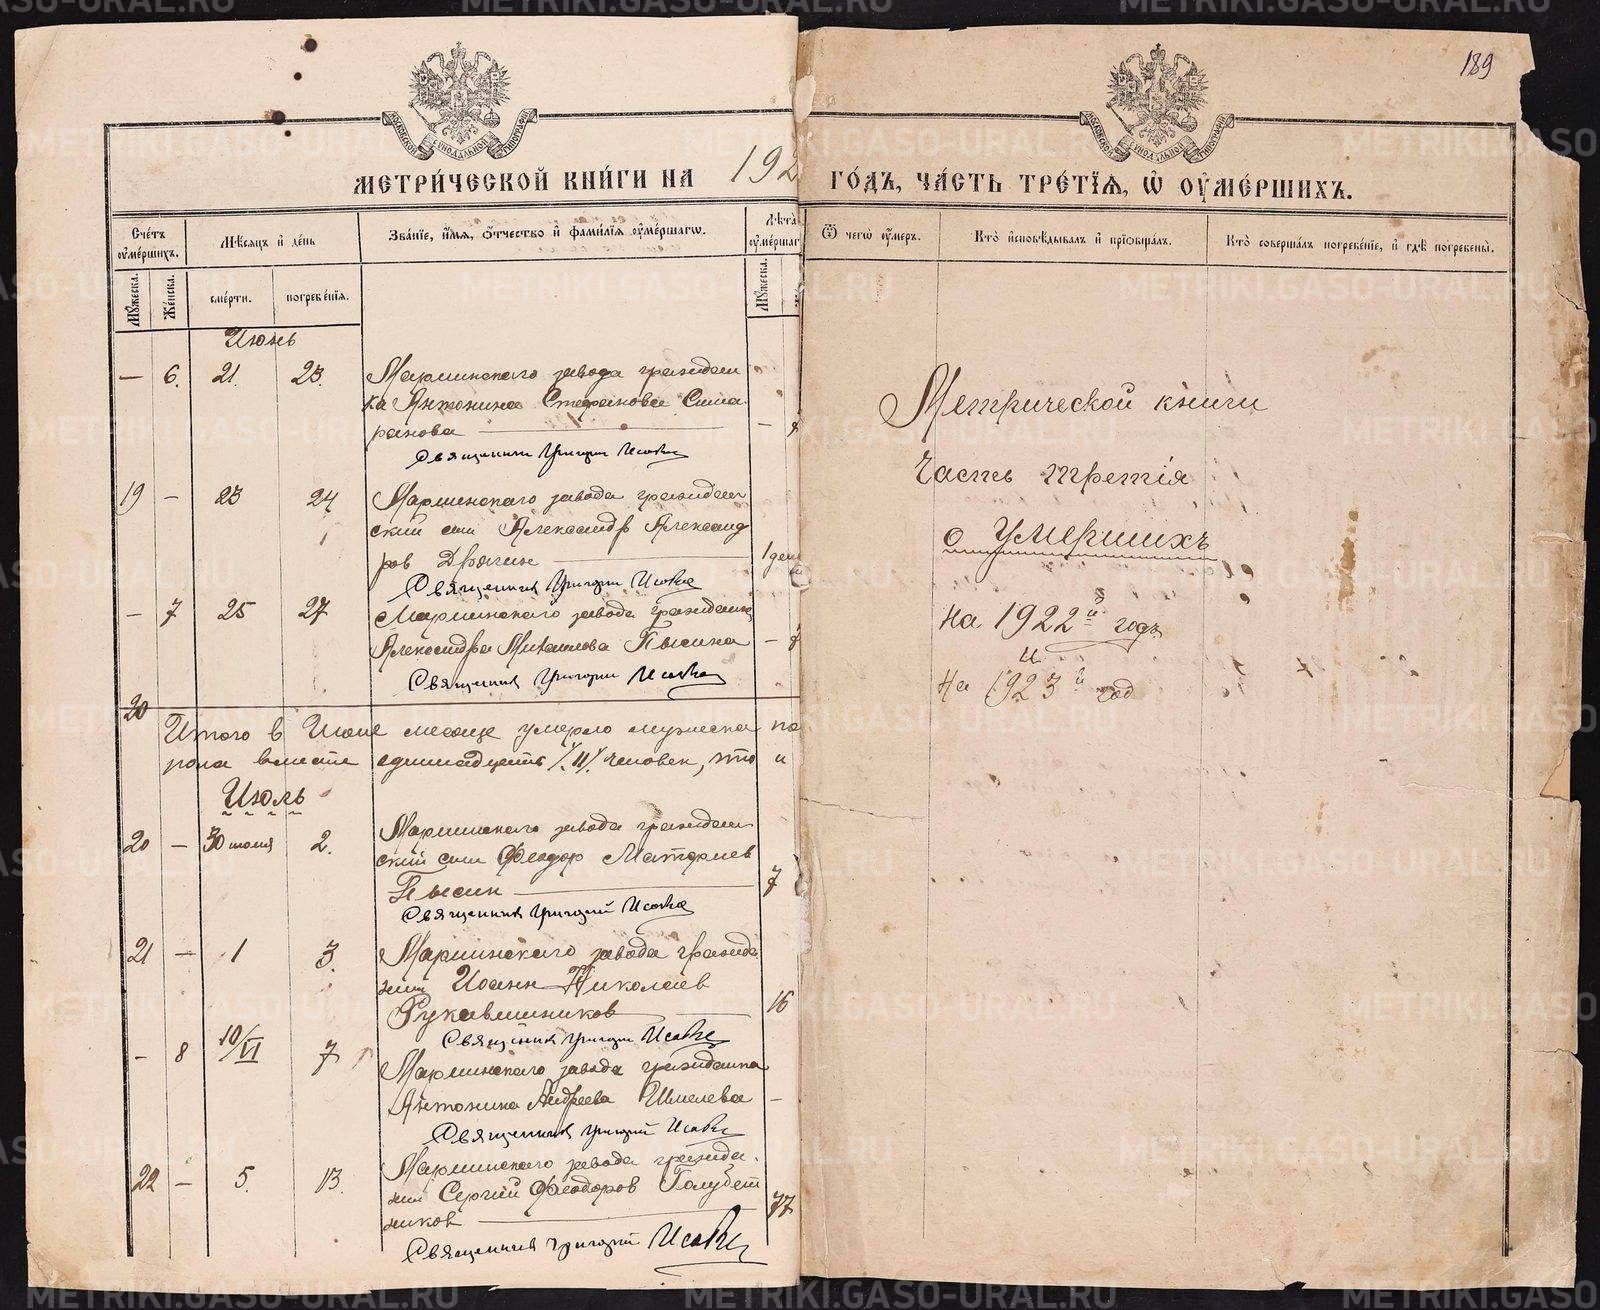 189
МОСКОВСКОЙ СѴНОДАЛЬНОЙ ТИПОГРАФІИ
МОСКОВСКОЙ СѴНОДАЛЬНОЙ ТИПОГРАФІИ
МЕТРИ́ЧЕСКОЙ КНИ́ГИ НА 192
ГО́ДЪ, ЧА́СТЬ ТРЕ́ТІѦ, Ѡ҆ ОУ҆МЕ́РШИХЪ.
Сче́тъ оу҆ме́ршихъ.
Мѣ́сяцъ и҆ де́нь
Зва́нїе, и҆́мя, ѻ҆́тчество и҆ фами́лїя оу҆ме́ршагѡ.
Лѣ́та оу҆ме́ршаг
Ѿ чегѡ̀ оу҆́меръ.
Кто̀ и҆сповѣ́дывалъ и҆ прїѡбща́лъ.
Кто̀ соверша́лъ погребе́нїе, и҆ гдѣ̀ погребены̀.
Мꙋ́жеска.
Же́нска.
сме́рти.
погребе́нїѧ.
Мꙋ́жеска.
Июнь
— 6. 21. 23. Мариинскаго завода граждан
ка Антонина Стефанова Сима
ранова —
Священник Григорий Исаков
19 — 23 24 Мариинскаго завода граждан
ский сын Александр Александ
ров Дрягин — 1 ден
Священник Григорий Исаков
— 7 25 27 Мариинскаго завода гражданка
Александра Михаилова Пысина —
Священник Григорий Исаков
20
Итого в Июне месяце умерло мужеска по
рола вместе одиннадцать /11/ человек, что и
Июль
20 — 30 июня 2. Мариинскаго завода граждан
ский сын Феодор Матфиев
Пысин — 7
Священник Григорий Исаков
21 — 1 3. Мариинскаго завода гражда
нин Иоанн Николаев
Рукавишников — 16
Священник Григорий Исаков
— 8 10/VI 7 Мариинскаго завода гражданка
Антонина Андреева Шмелева —
Священник Григорий Исаков
22 — 5. 13. Мариинскаго завода гражда
нин Сергий Феодоров Голубят
ников — 77
Священник Григорий Исаков
Метрической книги
Часть третія
о умершихъ
на 1922й годъ
и
на 1923й год
METRIKI.GASO-URAL.RU